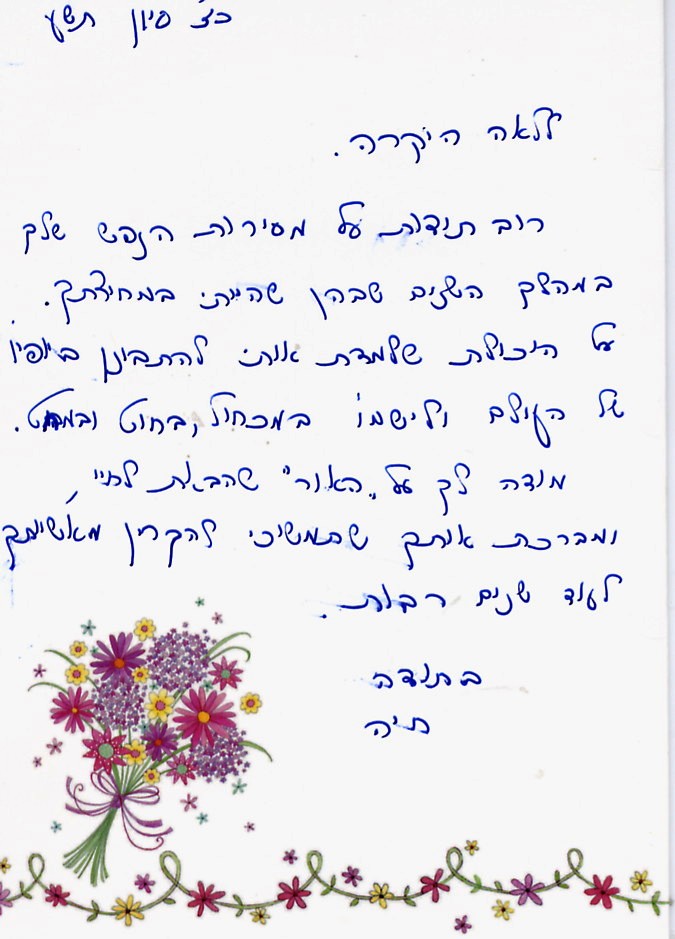 כ"צ סיון תש"ע
ללאה היקרה.
רוב תודות על מסירות הנפש שלך
במהלך השנים שבהן שהייתי במחיצתך.
על היכולת שלמדת אותי להתבונן ביופיו
של העולם ולישמו במכחול, בחוט ובמחט.
מודה לך על "האור" שהבאת לחיי
ומברכת אותך שתמשיכי להקרין מאישיותך
לעוד שנים רבות.
בתודה
חיה